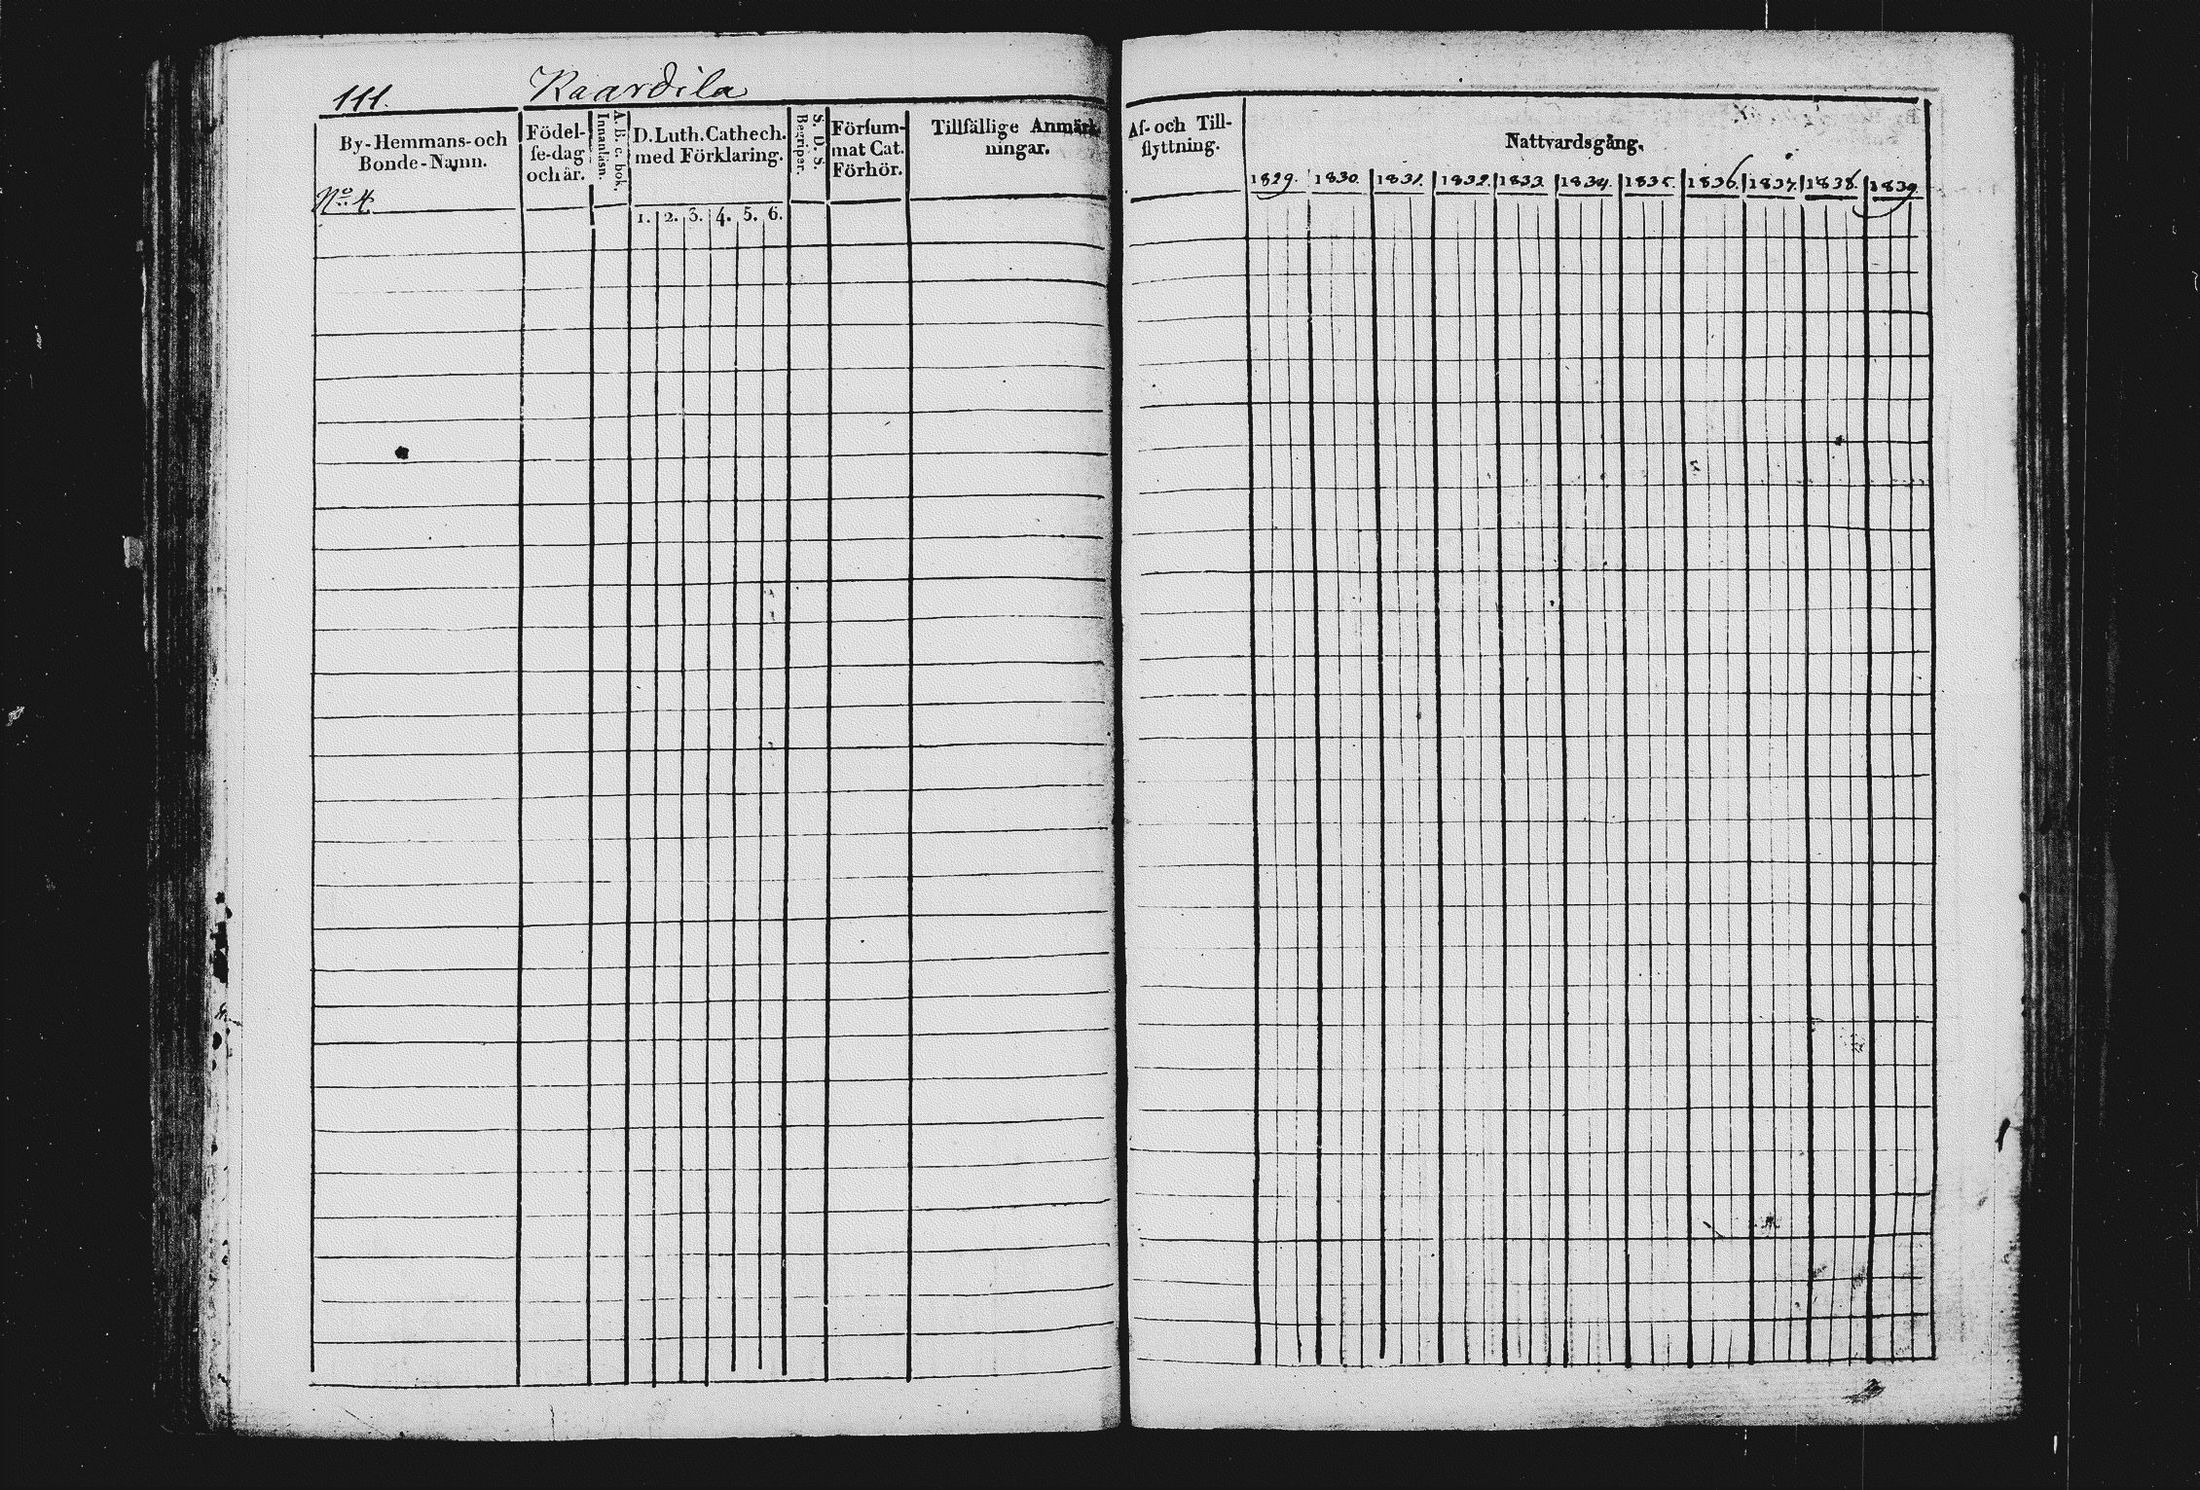 111. Kaardila
By-Hemmans-och
Bonde-Namn.
No 4.
Födel-
se-dag
och år.
A. B. c. bok.
Innanläsn.
D. Luth. Cathech.
med Förklaring.
1. 2. 3. 4. 5. 6.
S. D. S.
Begriper.
Försum-
mat Cat.
Förhör.
Tillfällige Anmärk-
ningar.
Af- och Till-
flyttning.
Nattvardsgång.
1829. 1830. 1831. 1832. 1833. 1834. 1835. 1836. 1837. 1838. 1839.